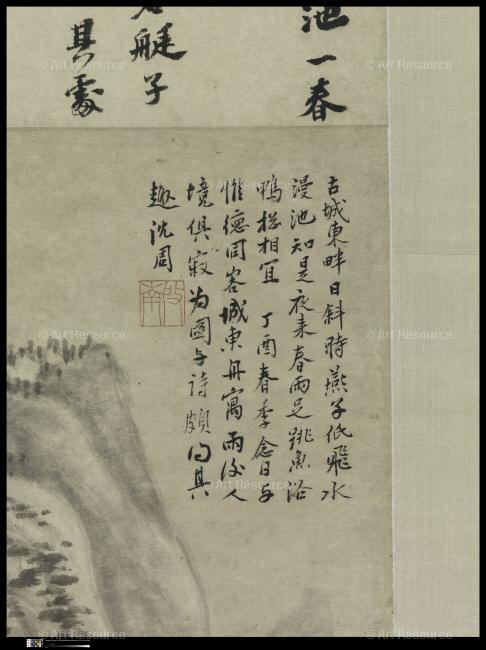 池一春
艇子
其處
古城東畔日斜時燕子低飛水
漫池知是夜来春雨足跳魚浴
鴨摠相宜 丁酉春季念日与
惟德同客城東舟寓雨後人
境俱寂为圖与詩頗得其
趣沈周
© Art Resource
© Art Resource
© Art Resource
© Art Resource
© Art Resource
© Art Resource
© Art Resource
© Art Resource
© Art Resource
© Art Resource
© Art Resource
© Art Resource